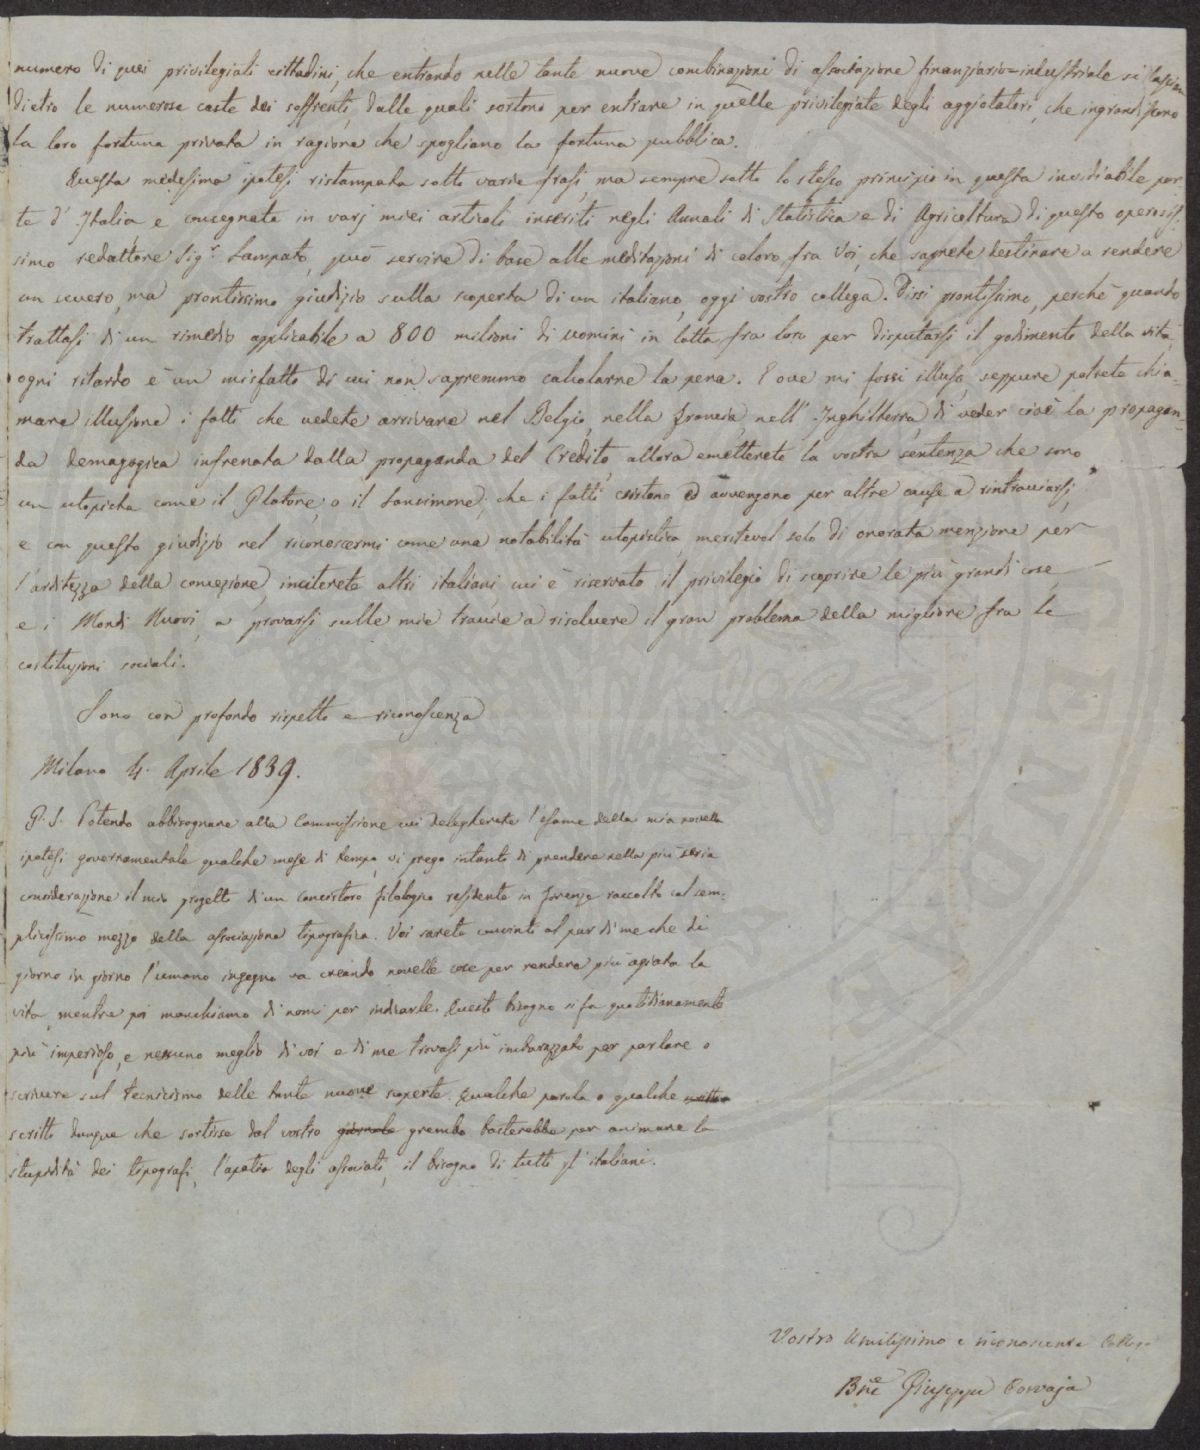 numero di quei privilegiati cittadini, che entrando nelle tante nuove combinazioni di associazione finanziario=industriale si lascian
dietro le numerose caste dei soffrenti, dalle quali sortono per entrare in quelle privilegiate degli aggiotatori, che ingrandiscono
la loro fortuna privata in ragione che spogliano la fortuna pubblica.
Questa medesima ipotesi ristampata sotto varie frasi, ma sempre sotto lo stesso principio in questa invidiabile par-
te d'Italia e consegnata in varj miei articoli inseriti negli Annali di Statistica e di Agricoltura di questo operosis-
simo redattore Sig.r Lampato, può servire di base alle meditazioni di coloro fra Voi, che saprete destinare a rendere
un severo, ma prontissimo giudizio sulla scoperta di un italiano, oggi vostro collega. Dissi prontissimo, perchè quando
trattasi di un rimedio applicabile a 800 milioni di uomini in lotta fra loro per disputarsi il godimento della vita,
ogni ritardo è un misfatto di cui non sapremmo calcolarne la pena. E ove mi fossi illuso, seppure potrete chia-
mare illusione i fatti che vedete arrivare nel Belgio, nella Francia, nell'Inghilterra, di veder cioè la propagan-
da demagogica infrenata dalla propaganda del Credito, allora emetterete la vostra sentenza che sono
un utopista come il Platone, o il Sansimone; che i fatti esistono ed avvengono per altre cause a rintracciarsi;
e con questo giudizio nel riconoscermi come una notabilità utopistica, meritevol solo di onorata menzione per
l'arditezza della concezione, inciterete altri italiani, cui è riservato il privilegio di scoprire le più grandi cose,
e i Mondi Nuovi, a provarsi sulle mie traccie a risolvere il gran problema della migliore fra le
costituzioni sociali.
Sono con profondo rispetto e riconoscenza
Milano 4. Aprile 1839.
P.S. Potendo abbisognare alla Commissione cui delegherete l'esame della mia novella
ipotesi governamentale qualche mese di tempo, vi prego intanto di prendere nella più seria
considerazione il mio progetto di un Concistoro filologico residente in Firenze raccolto col sem-
plicissimo mezzo della associazione tipografica. Voi sarete convinti al par di me che di
giorno in giorno l'umano ingegno va creando novelle cose per rendere più agiata la
vita, mentre poi manchiamo di nomi per indicarle. Questo bisogno si fa quotidianamente
più imperioso, e nessuno meglio di voi e di me trovasi più imbarazzato per parlare o
scrivere sul tecnicismo delle tante nuove scoperte. Qualche parola o qualche
scritto dunque che sortisse dal vostro giornale grembo basterebbe per animare la
stupidità dei tipografi, l'apatia degli associati, il bisogno di tutti gl'italiani.
Vostro Umilissimo e riconoscente Collega
Bne Giuseppe Corvaja